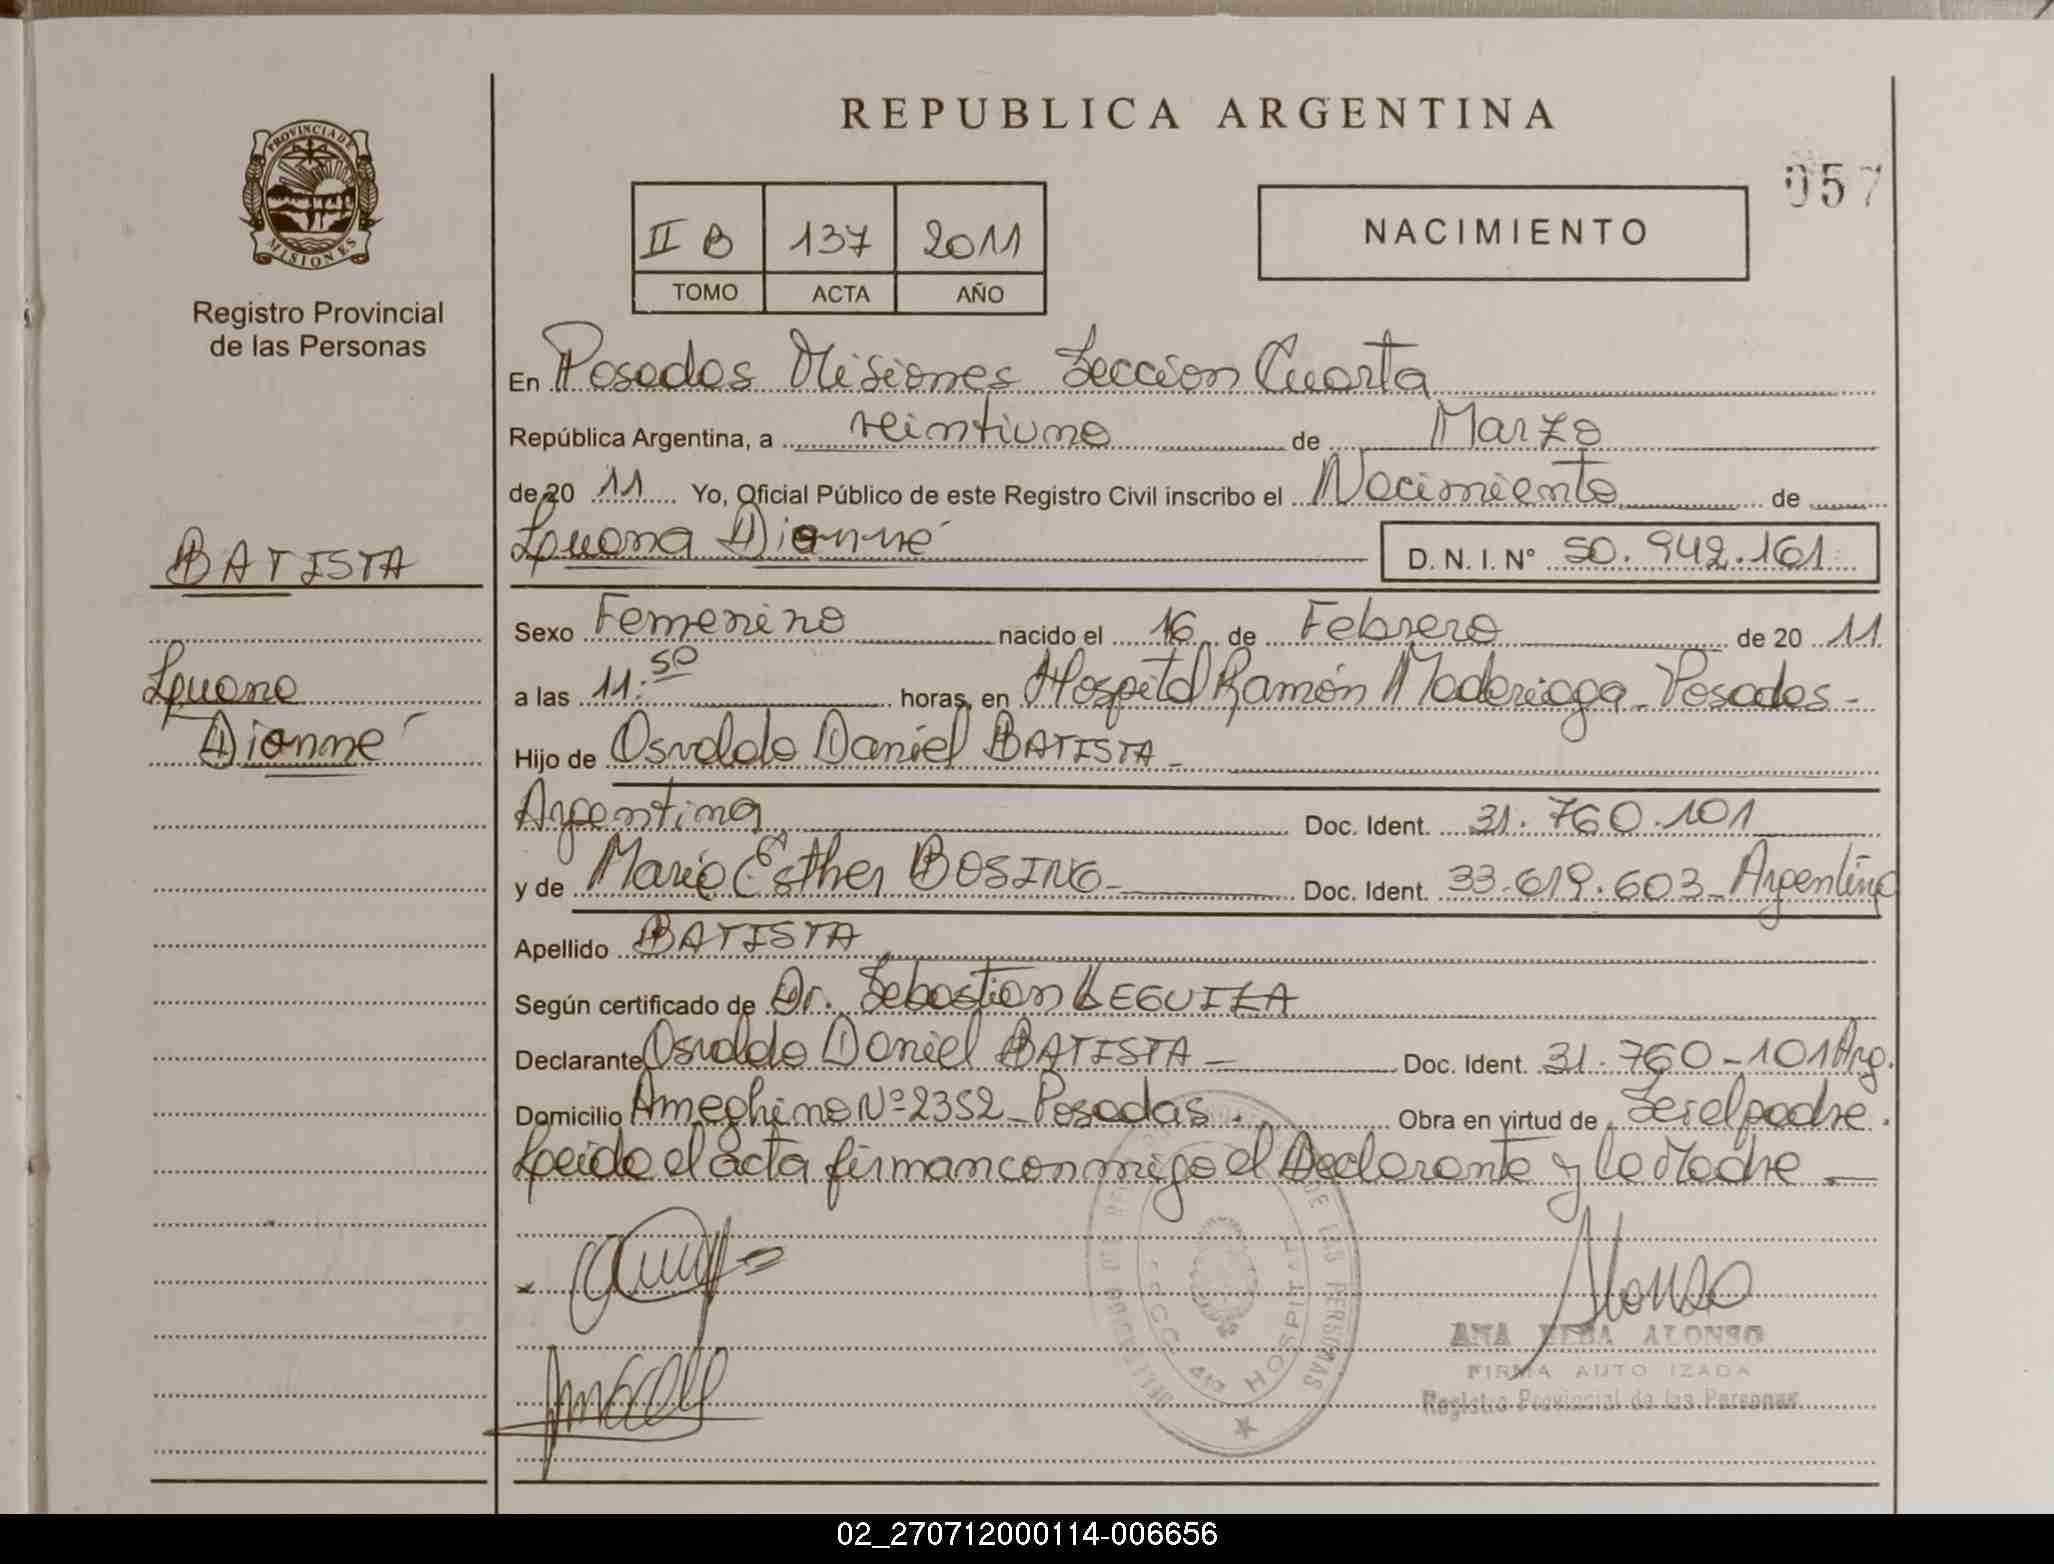 PROVINCIA DE
MISIONES
Registro Provincial
de las Personas
BATISTA
Luana
Dianné
REPUBLICA ARGENTINA
057
II B 137 2011
TOMO ACTA AÑO
NACIMIENTO
En Posadas Misiones Seccion Cuarta
República Argentina, a veintiuno de Marzo
de 20 11 Yo, Oficial Público de este Registro Civil inscribo el Nacimiento de
Luana Dianné D. N. I. Nº 50.942.161
Sexo Femenino nacido el 16 de Febrero de 20 11
a las 11:50 horas, en Hospital Ramón Madariaga - Posadas -
Hijo de Osvaldo Daniel BATISTA -
Argentina Doc. Ident. 31.760.101
y de María Esther BOSING - Doc. Ident. 33.619.603 - Argentina
Apellido BATISTA
Según certificado de Dr. Sebastian LEGUIZA
Declarante Osvaldo Daniel BATISTA - Doc. Ident. 31.760-101 Arg.
Domicilio Ameghino Nº 2352 - Posadas. Obra en virtud de Ser el padre.
Leida el acta firman conmigo el Declarante y la Madre -
Alonso
ANA ALONSO
FIRMA AUTO IZADA
Registro Provincial de las Personas
DE LAS PERSONAS
HOSPITAL
02_270712000114-006656